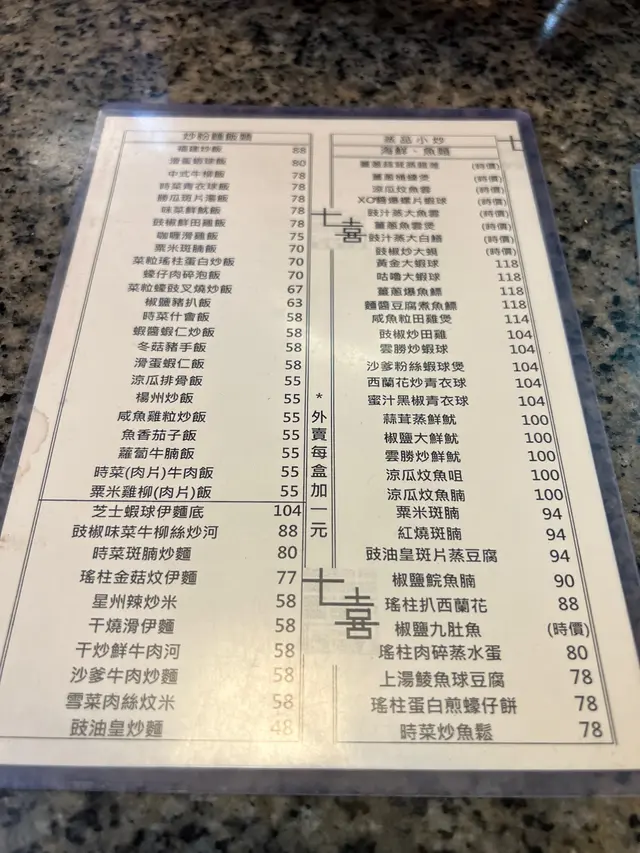 炒粉麵飯類
福建炒飯 88
滑蛋蝦球飯 80
中式牛柳飯 78
時菜青衣球飯 78
勝瓜斑片湯飯 78
味菜鮮魷飯 78
豉椒鮮田雞飯 78
咖喱滑雞飯 75
粟米斑腩飯 70
菜粒瑤柱蛋白炒飯 70
蠔仔肉碎泡飯 70
菜粒蠔豉叉燒炒飯 67
椒鹽豬扒飯 63
時菜什會飯 58
蝦醬蝦仁炒飯 58
冬菇豬手飯 58
滑蛋蝦仁飯 58
涼瓜排骨飯 55
楊州炒飯 55
咸魚雞粒炒飯 55
魚香茄子飯 55
蘿蔔牛腩飯 55
時菜(肉片)牛肉飯 55
粟米雞柳(肉片)飯 55
芝士蝦球伊麵底 104
豉椒味菜牛柳絲炒河 88
時菜斑腩炒麵 80
瑤柱金菇炆伊麵 77
星州辣炒米 58
干燒滑伊麵 58
干炒鮮牛肉河 58
沙爹牛肉炒麵 58
雪菜肉絲炆米 58
豉油皇炒麵 48
七喜
*外賣每盒加一元
七喜
蒸品小炒
海鮮、魚類
(時價)
薑蔥桶煲 (時價)
涼瓜炆魚雲 (時價)
XO醬爆螺片蝦球 (時價)
豉汁蒸大魚雲 (時價)
薑蔥魚雲煲 (時價)
豉汁蒸大白鱔 (時價)
豉椒炒大蜆 (時價)
黃金大蝦球 118
咕嚕大蝦球 118
薑蔥爆魚鰾 118
麵醬豆腐煮魚鰾 118
咸魚粒田雞煲 114
豉椒炒田雞 104
雲勝炒蝦球 104
沙爹粉絲蝦球煲 104
西蘭花炒青衣球 104
蜜汁黑椒青衣球 104
蒜茸蒸鮮魷 100
椒鹽大鮮魷 100
雲勝炒鮮魷 100
涼瓜炆魚咀 100
涼瓜炆魚腩 100
粟米斑腩 94
紅燒斑腩 94
豉油皇斑片蒸豆腐 94
椒鹽鯇魚腩 90
瑤柱扒西蘭花 88
椒鹽九肚魚 (時價)
瑤柱肉碎蒸水蛋 80
上湯鯪魚球豆腐 78
瑤柱蛋白煎蠔仔餅 78
時菜炒魚鬆 78